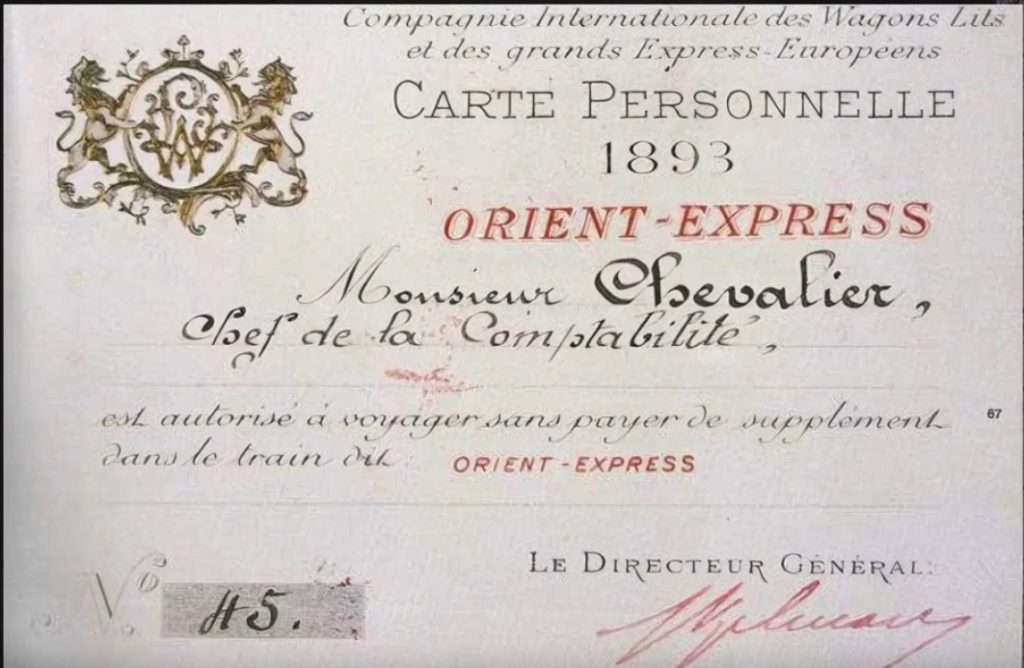 Compagnie Internationale des Wagons Lits
et des grands Express-Européens
CARTE PERSONNELLE
1893
ORIENT-EXPRESS
Monsieur Chevalier,
Chef de la Comptabilité,
est autorisé à voyager sans payer de supplément
dans le train dit ORIENT-EXPRESS
67
LE DIRECTEUR GÉNÉRAL:
No 45.